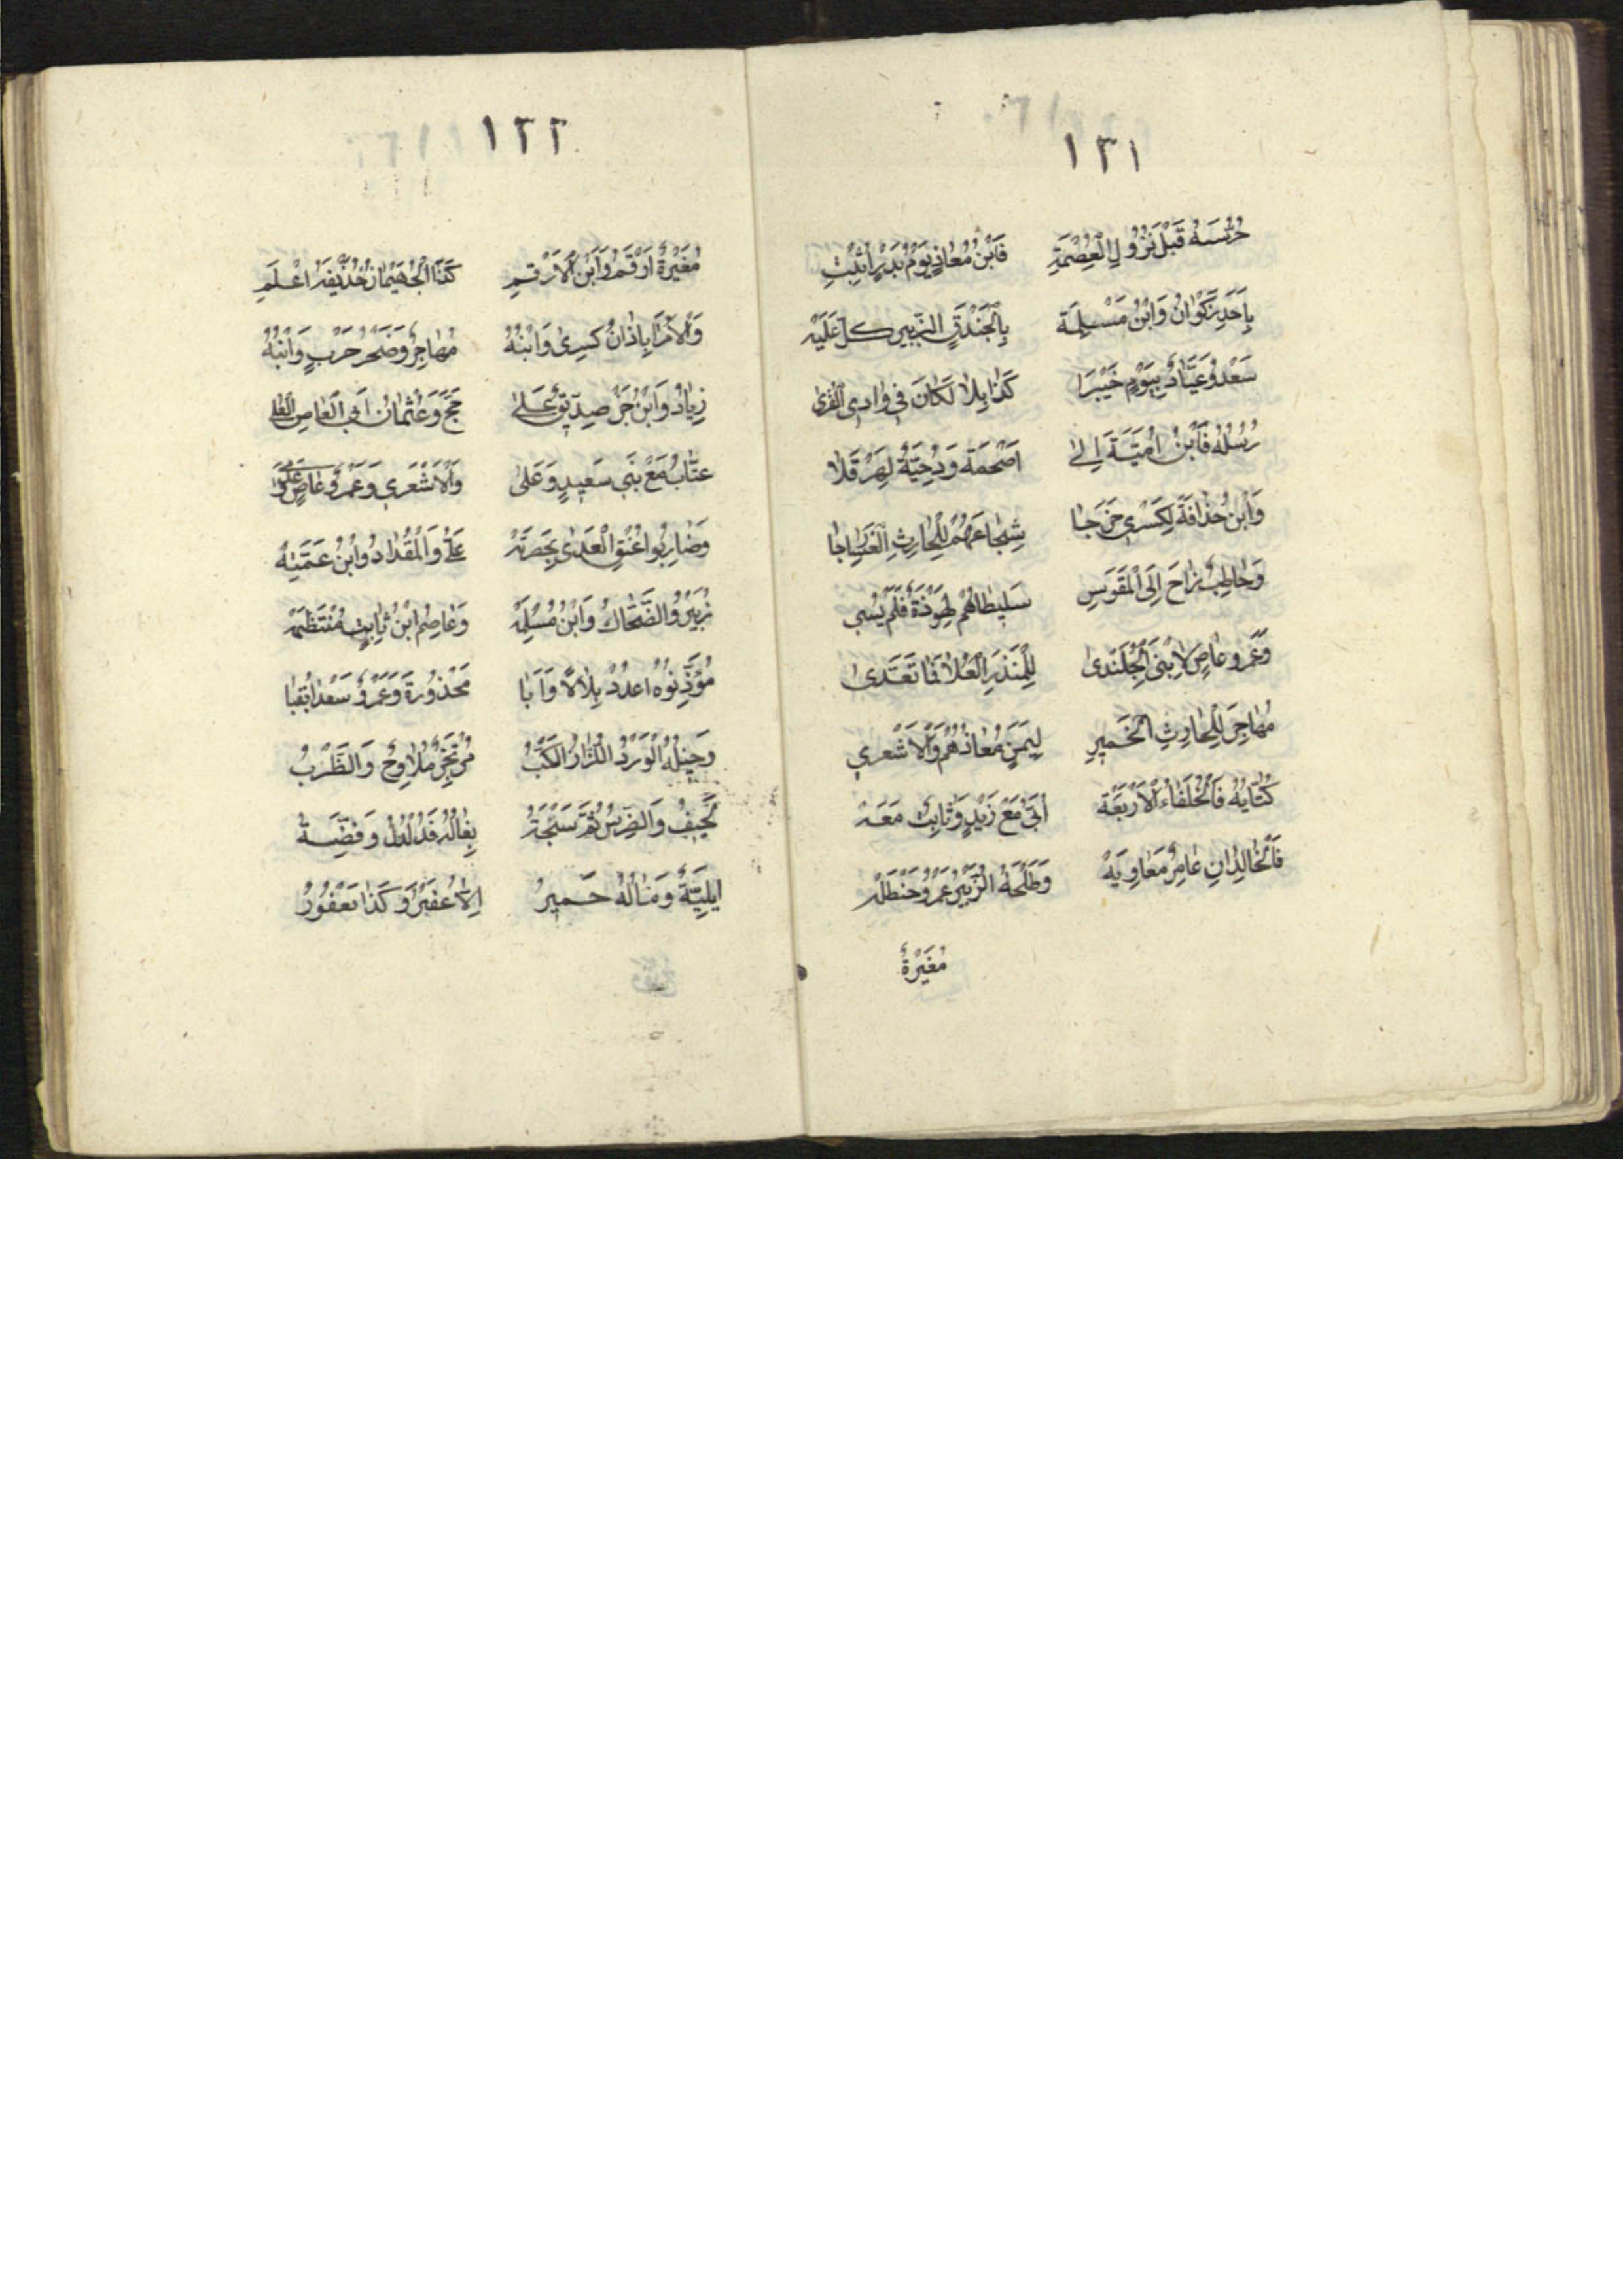 ١٣١
حرسه قَبْلَ نُزُولِ الْعِصْمَةِ فَابْنُ مُعَاذٍ يَوْمَ بَدْرٍ اثْبِتِ
بِاُحُدٍ ذَكْوَانُ وَابْنُ مَسْلِمَة بِالْخَنْدَقِ الزُّبَيْرِ كل عَلَيْه
سَعْدُ وَعَبَّادٌ بِيَوْمِ خَيْبَرَا كَذَا بِلَا لَكَانَ فِي وَادِى الْقُرٰى
رُسُلُهُ فَابْنُ اُمَيَّةَ اِلٰى اَصْحَمَة وَدِحْيَةٌ لِهِرَقْلَا
وَابْنُ حُذَافَةَ لِكِسْرٰى خَرَجَا شُجَاعَهُمْ لِلْحَارِثِ
وَحَاطِبٌ رَاحَ اِلَى الْمَقَوْسِ سَلِيطُهُمْ لِهَوْذَةَ فَلَمْ
وَعَمْرو عَاصٍ لِابْنَىِ الْجُلَنْدٰى لِلْمُنْذِرِ الْعَلَا فَمَا تَعَدّٰى
مُهَاجِرَ لِلْحَارِثِ الْحَمِيرِ لِيَمَنٍ مُعَاذُهُمْ وَالْاَشْعَرِي
كُتَّابُهُ فَالْخُلَفَاءُ الْاَرْبَعَة اُبَىّ مَعْ زَيْدٍ وَثَابِتُ مَعَه
فَالْخَالِدَانِ عَامِرٌ مَعَاوِيَهْ وَطَلْحَةُ الزُّبَيْرُ عَمْرُو حَنْظَلَه
مُغَيْرَةٌ
١٣٢
مُغَيْرَةٌ اَرْقَمُ وَابْنُ الْاَرْقَمِ كَذَا الْجُهَيْمُ حُذَيْفَه اعْلَمِ
وَالْاُمَرَا بَاذَانُ كِسْرٰى وَابْنُهُ مُهَاجِرٌ وَصَخْرُ حَرْبٍ وَابْنُهُ
زِيَادٌ وَابْنُ جَبَلْ صِدِّيقٌ عَلٰى حَجّ وَعُثْمَانُ اَبِى الْعَاصِ
عتَّابُ مَعْ بَنِى سَعِيدٍ وَعَلٰى وَالْاَشْعَرِي وَعَمْرُو عَاصٍ
وَضَارِبُوا عُنْقِ الْعَدٰى بِحَضْرَتِهْ عَلِىٌّ وَالْمِقْدَادُ وَابْنُ عَمَّتِهْ
زُبَيْرُ وَالضَّحَّاكُ وَابْنُ مُسْلِمَهْ وَعَاصِمُ ابْنُ ثَابِتٍ مُنْتَظِمَهْ
مُؤَذِّنُوهُ اعْدُدْ بِلَالًا وَاَبَا مَحْذُورَةَ وَعَمْرُو سَعْدًا بِقُبَا
وَخَيْلُهُ الْوَرْدُ اللِّزَازُ السَّكْبُ مُرْتَجِزٌ مُلَاوِحٌ وَالظَّرْبُ
لَحِيفُ وَالضِّرْسُ ثُمَّ سَبْحَةُ بِغَالُهُ فَدُلْدُلْ وَفِضَّةُ
اَيْلِيَّةٌ وَمَالُهُ حَمِيرُ اِلَّا عُفَيْرُ وَكَذَا يَعْفُورُ